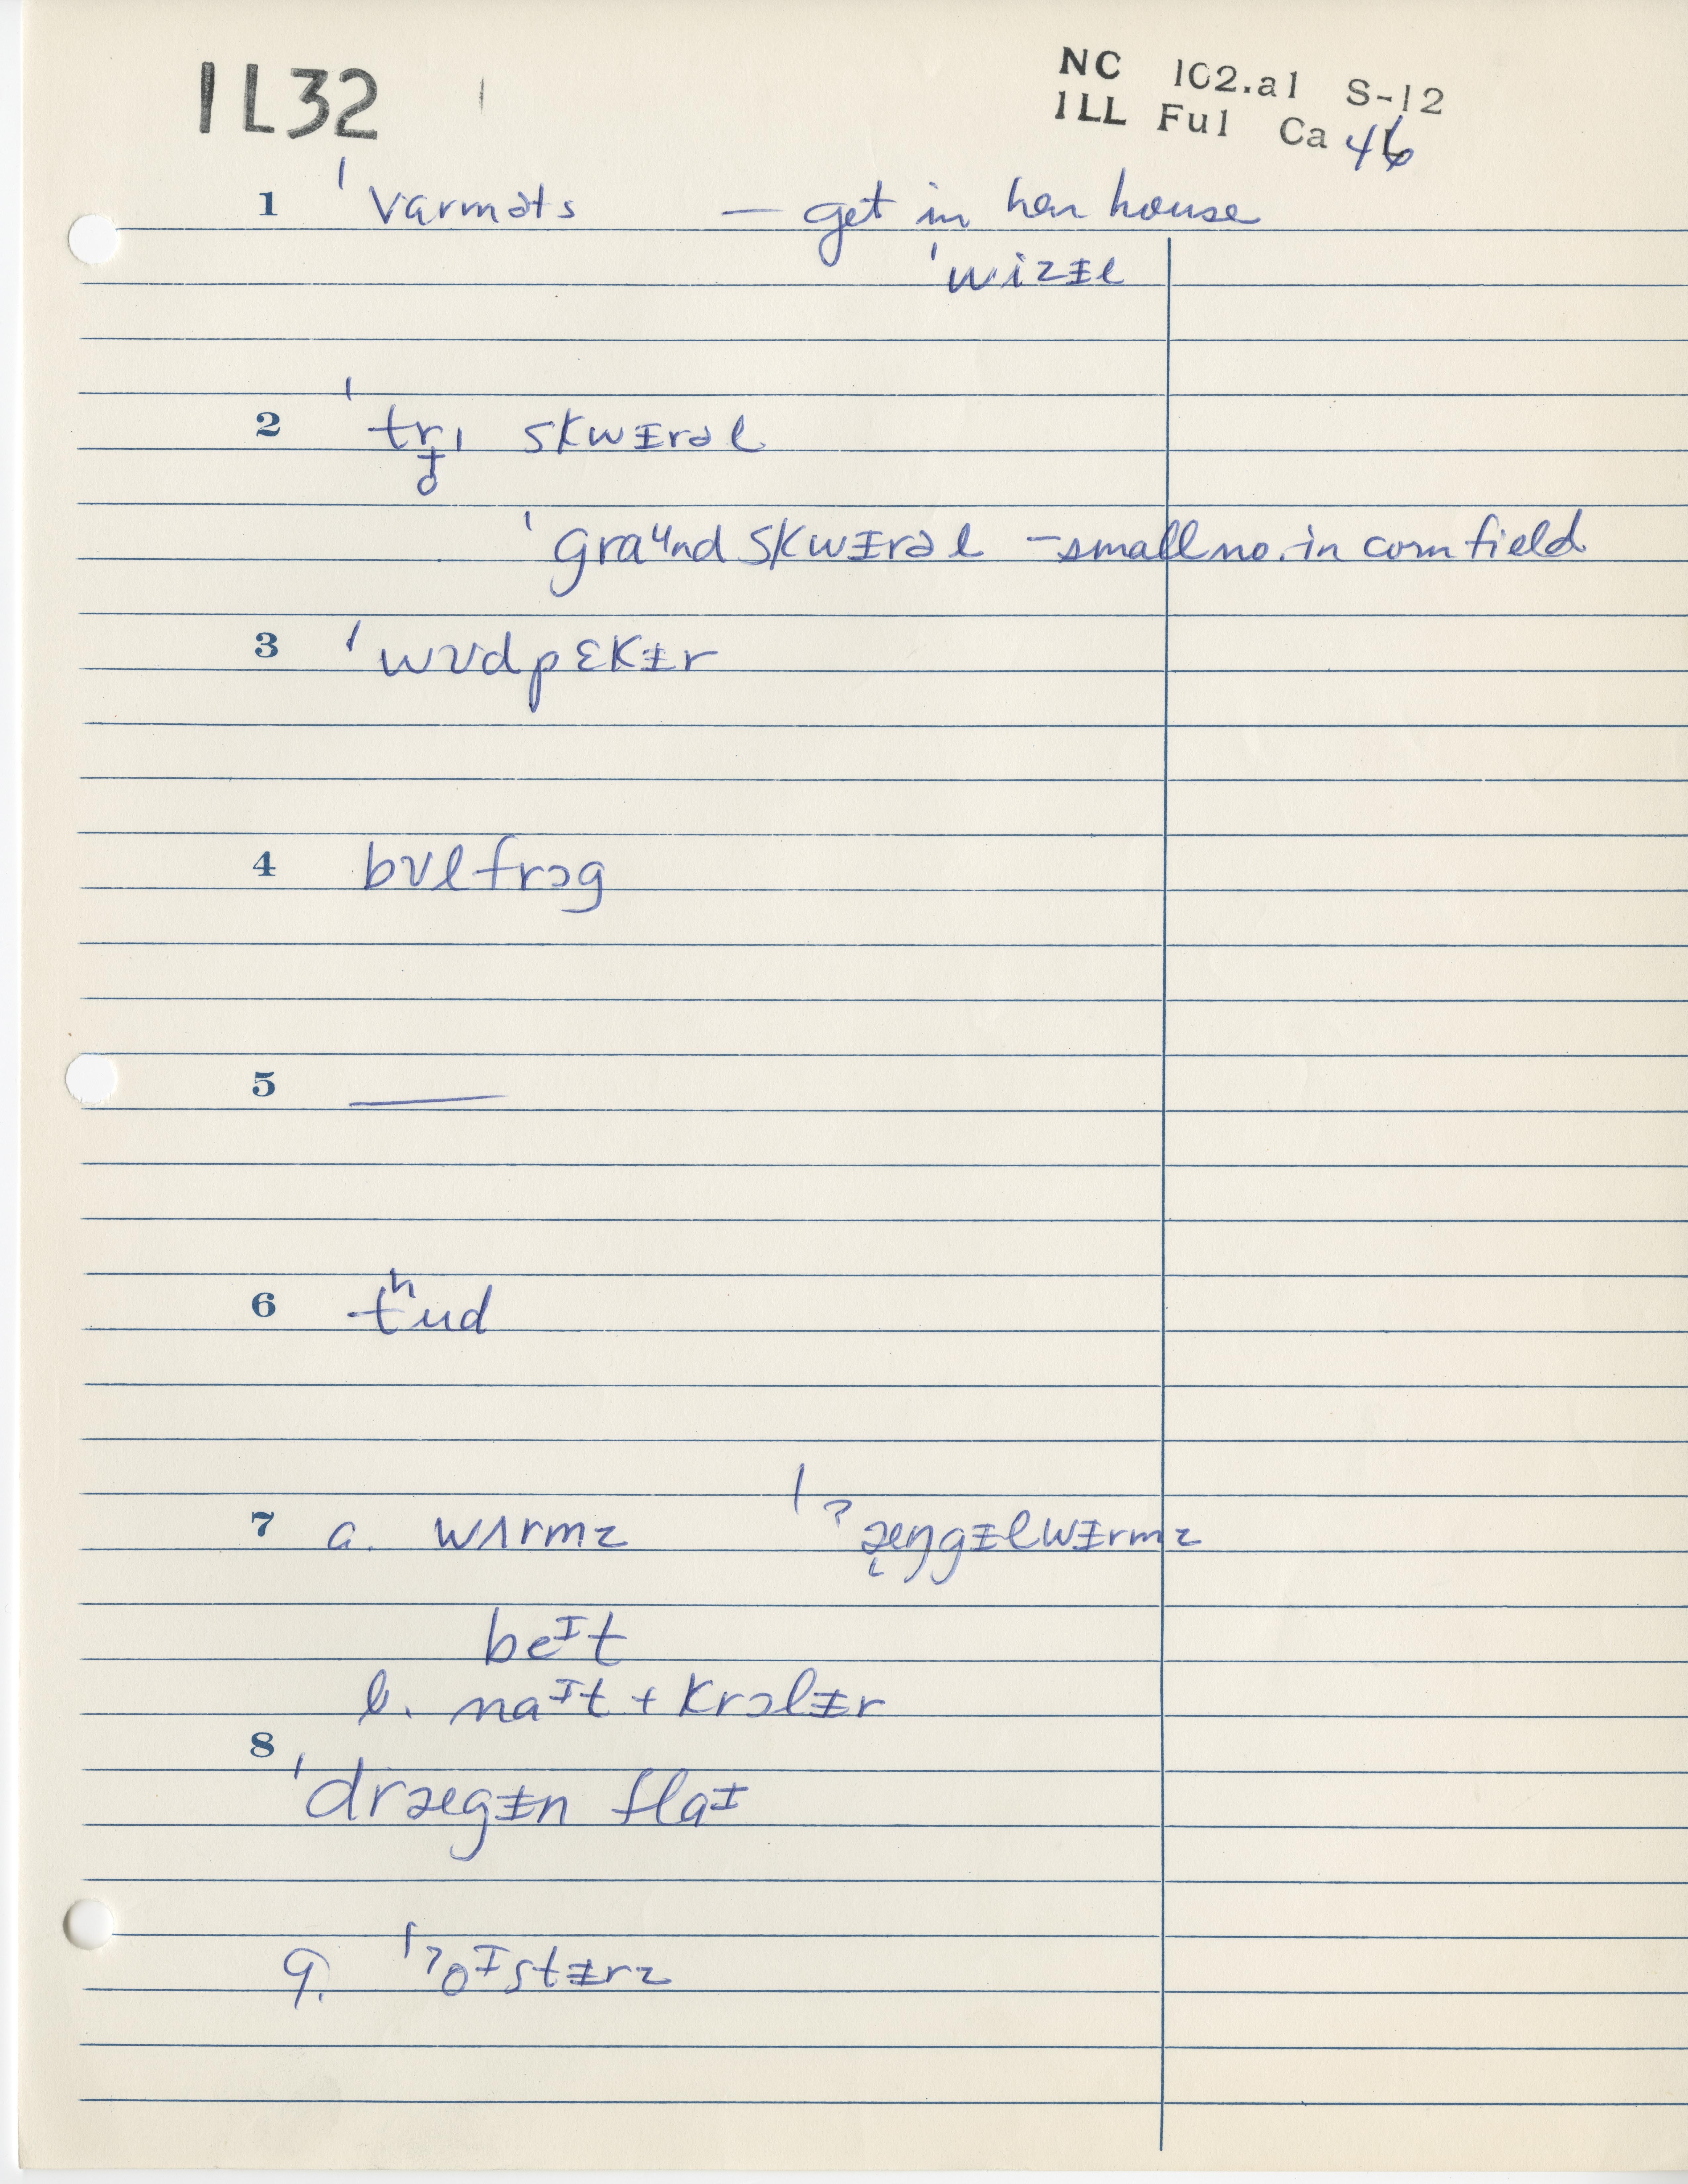 1L32
NC 102.a1 S-12
ILL Ful Ca 46
1 ˈvarməts — get in hen house
ˈwizɪ̵l
2 ˈtri skwɪrəl
ˈgraᶸnd skwɪrəl - small no. in corn field
3 ˈwʊdpɛkɪ̵r
4 bʊlfrɔg
5 —
6 tʰud
7 a. wʌrmz ˈˀæŋgɪ̵lwɪ̵rmz
beᶦt
b. naᶦt + krɔlɪ̵r
8
ˈdrægɪ̵n flaᶦ
9. ˈˀoᶦstɪ̵rz